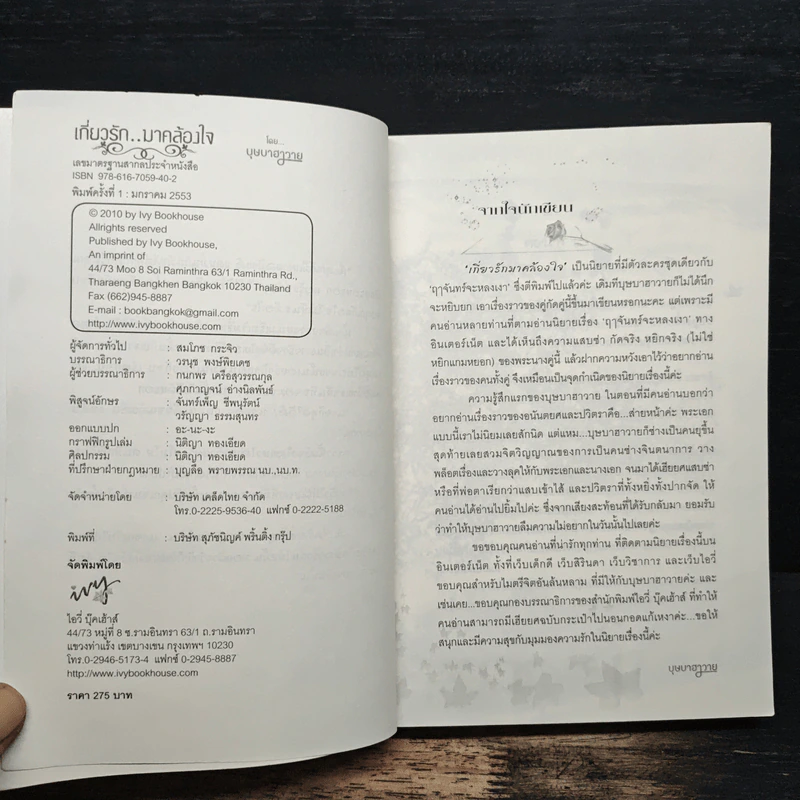 เกี่ยวรัก..มาคล้องใจ
โดย...
บุษบาฮาวาย
เลขมาตรฐานสากลประจำหนังสือ
ISBN 978-616-7059-40-2
พิมพ์ครั้งที่ 1 : มกราคม 2553
© 2010 by Ivy Bookhouse
Allrights reserved
Published by Ivy Bookhouse,
An imprint of
44/73 Moo 8 Soi Ramintra 63/1 Ramintra Rd.,
Tharaeng Bangkhen Bangkok 10230 Thailand
Fax (662)945-8887
E-mail : bookbangkok@gmail.com
http://www.ivybookhouse.com
ผู้จัดการทั่วไป : สมโภช กระจิว
บรรณาธิการ : วรนุช พงษ์พิยเดช
ผู้ช่วยบรรณาธิการ : กนกพร เครือสุวรรณกุล
ศุภกาญจน์ อ่างนิลพันธ์
พิสูจน์อักษร : จันทร์เพ็ญ ชีพนุรัตน์
วรัญญา ธรรมสุนทร
ออกแบบปก : อะ-นะ-งะ
กราฟฟิกรูปเล่ม : นิติญา ทองเอียด
ศิลปกรรม : นิติญา ทองเอียด
ที่ปรึกษาฝ่ายกฎหมาย : บุญลือ พรายพรรณ นบ.,นบ.ท.
จัดจำหน่ายโดย : บริษัท เคล็ดไทย จำกัด
โทร.0-2225-9536-40 แฟกซ์ 0-2222-5188
พิมพ์ที่ : บริษัท สุภัชนิญค์ พริ้นติ้ง กรุ๊ป
จัดพิมพ์โดย
ivy
ไอวี่ บุ๊คเฮ้าส์
44/73 หมู่ที่ 8 ซ.รามอินทรา 63/1 ถ.รามอินทรา
แขวงท่าแร้ง เขตบางเขน กรุงเทพฯ 10230
โทร.0-2946-5173-4 แฟกซ์ 0-2945-8887
http://www.ivybookhouse.com
ราคา 275 บาท
จากใจนักเขียน
'เกี่ยวรักมาคล้องใจ' เป็นนิยายที่มีตัวละครชุดเดียวกับ
'ฤาจันทร์จะหลงเงา' ซึ่งตีพิมพ์ไปแล้วค่ะ เดิมทีบุษบาฮาวายก็ไม่ได้นึก
จะหยิบยก เอาเรื่องราวของคู่กัดคู่นี้ขึ้นมาเขียนหรอกนะคะ แต่เพราะมี
คนอ่านหลายท่านที่ตามอ่านนิยายเรื่อง 'ฤาจันทร์จะหลงเงา' ทาง
อินเตอร์เน็ต และได้เห็นถึงความแสบซ่า กัดจริง หยิกจริง (ไม่ใช่
หยิกแกมหยอก) ของพระนางคู่นี้ แล้วฝากความหวังเอาไว้ว่าอยากอ่าน
เรื่องราวของคนทั้งคู่ จึงเหมือนเป็นจุดกำเนิดของนิยายเรื่องนี้ค่ะ
ความรู้สึกแรกของบุษบาฮาวาย ในตอนที่มีคนอ่านบอกว่า
อยากอ่านเรื่องราวของอนันตยศและปวิตราคือ...ส่ายหน้าค่ะ พระเอก
แบบนี้เราไม่นิยมเลยสักนิด แต่แหม...บุษบาฮาวายก็ช่างเป็นคนยุขึ้น
สุดท้ายเลยสวมจิตวิญญาณของการเป็นคนช่างจินตนาการ วาง
พล็อตเรื่องและวางลุคให้กับพระเอกและนางเอก จนมาได้เฮียยศแสบซ่า
หรือที่พ่อตาเรียกว่าแสบเข้าไส้ และปวิตราที่ทั้งหยิ่งทั้งปากจัด ให้
คนอ่านได้อ่านไปยิ้มไปค่ะ ซึ่งจากเสียงสะท้อนที่ได้รับกลับมา ยอมรับ
ว่าทำให้บุษบาฮาวายลืมความไม่อยากในวันนั้นไปเลยค่ะ
ขอขอบคุณคนอ่านที่น่ารักทุกท่าน ที่ติดตามนิยายเรื่องนี้บน
อินเตอร์เน็ต ทั้งที่เว็บเด็กดี เว็บสิรินดา เว็บวิชาการ และเว็บไอวี่
ขอบคุณสำหรับไมตรีจิตอันล้นหลาม ที่มีให้กับบุษบาฮาวายค่ะ และ
เช่นเคย...ขอบคุณกองบรรณาธิการของสำนักพิมพ์ไอวี่ บุ๊คเฮ้าส์ ที่ทำให้
คนอ่านสามารถมีเฮียยศฉบับกระเป๋าไปนอนกอดแก้เหงาค่ะ...ขอให้
สนุกและมีความสุขกับมุมมองความรักในนิยายเรื่องนี้ค่ะ
บุษบาฮาวาย